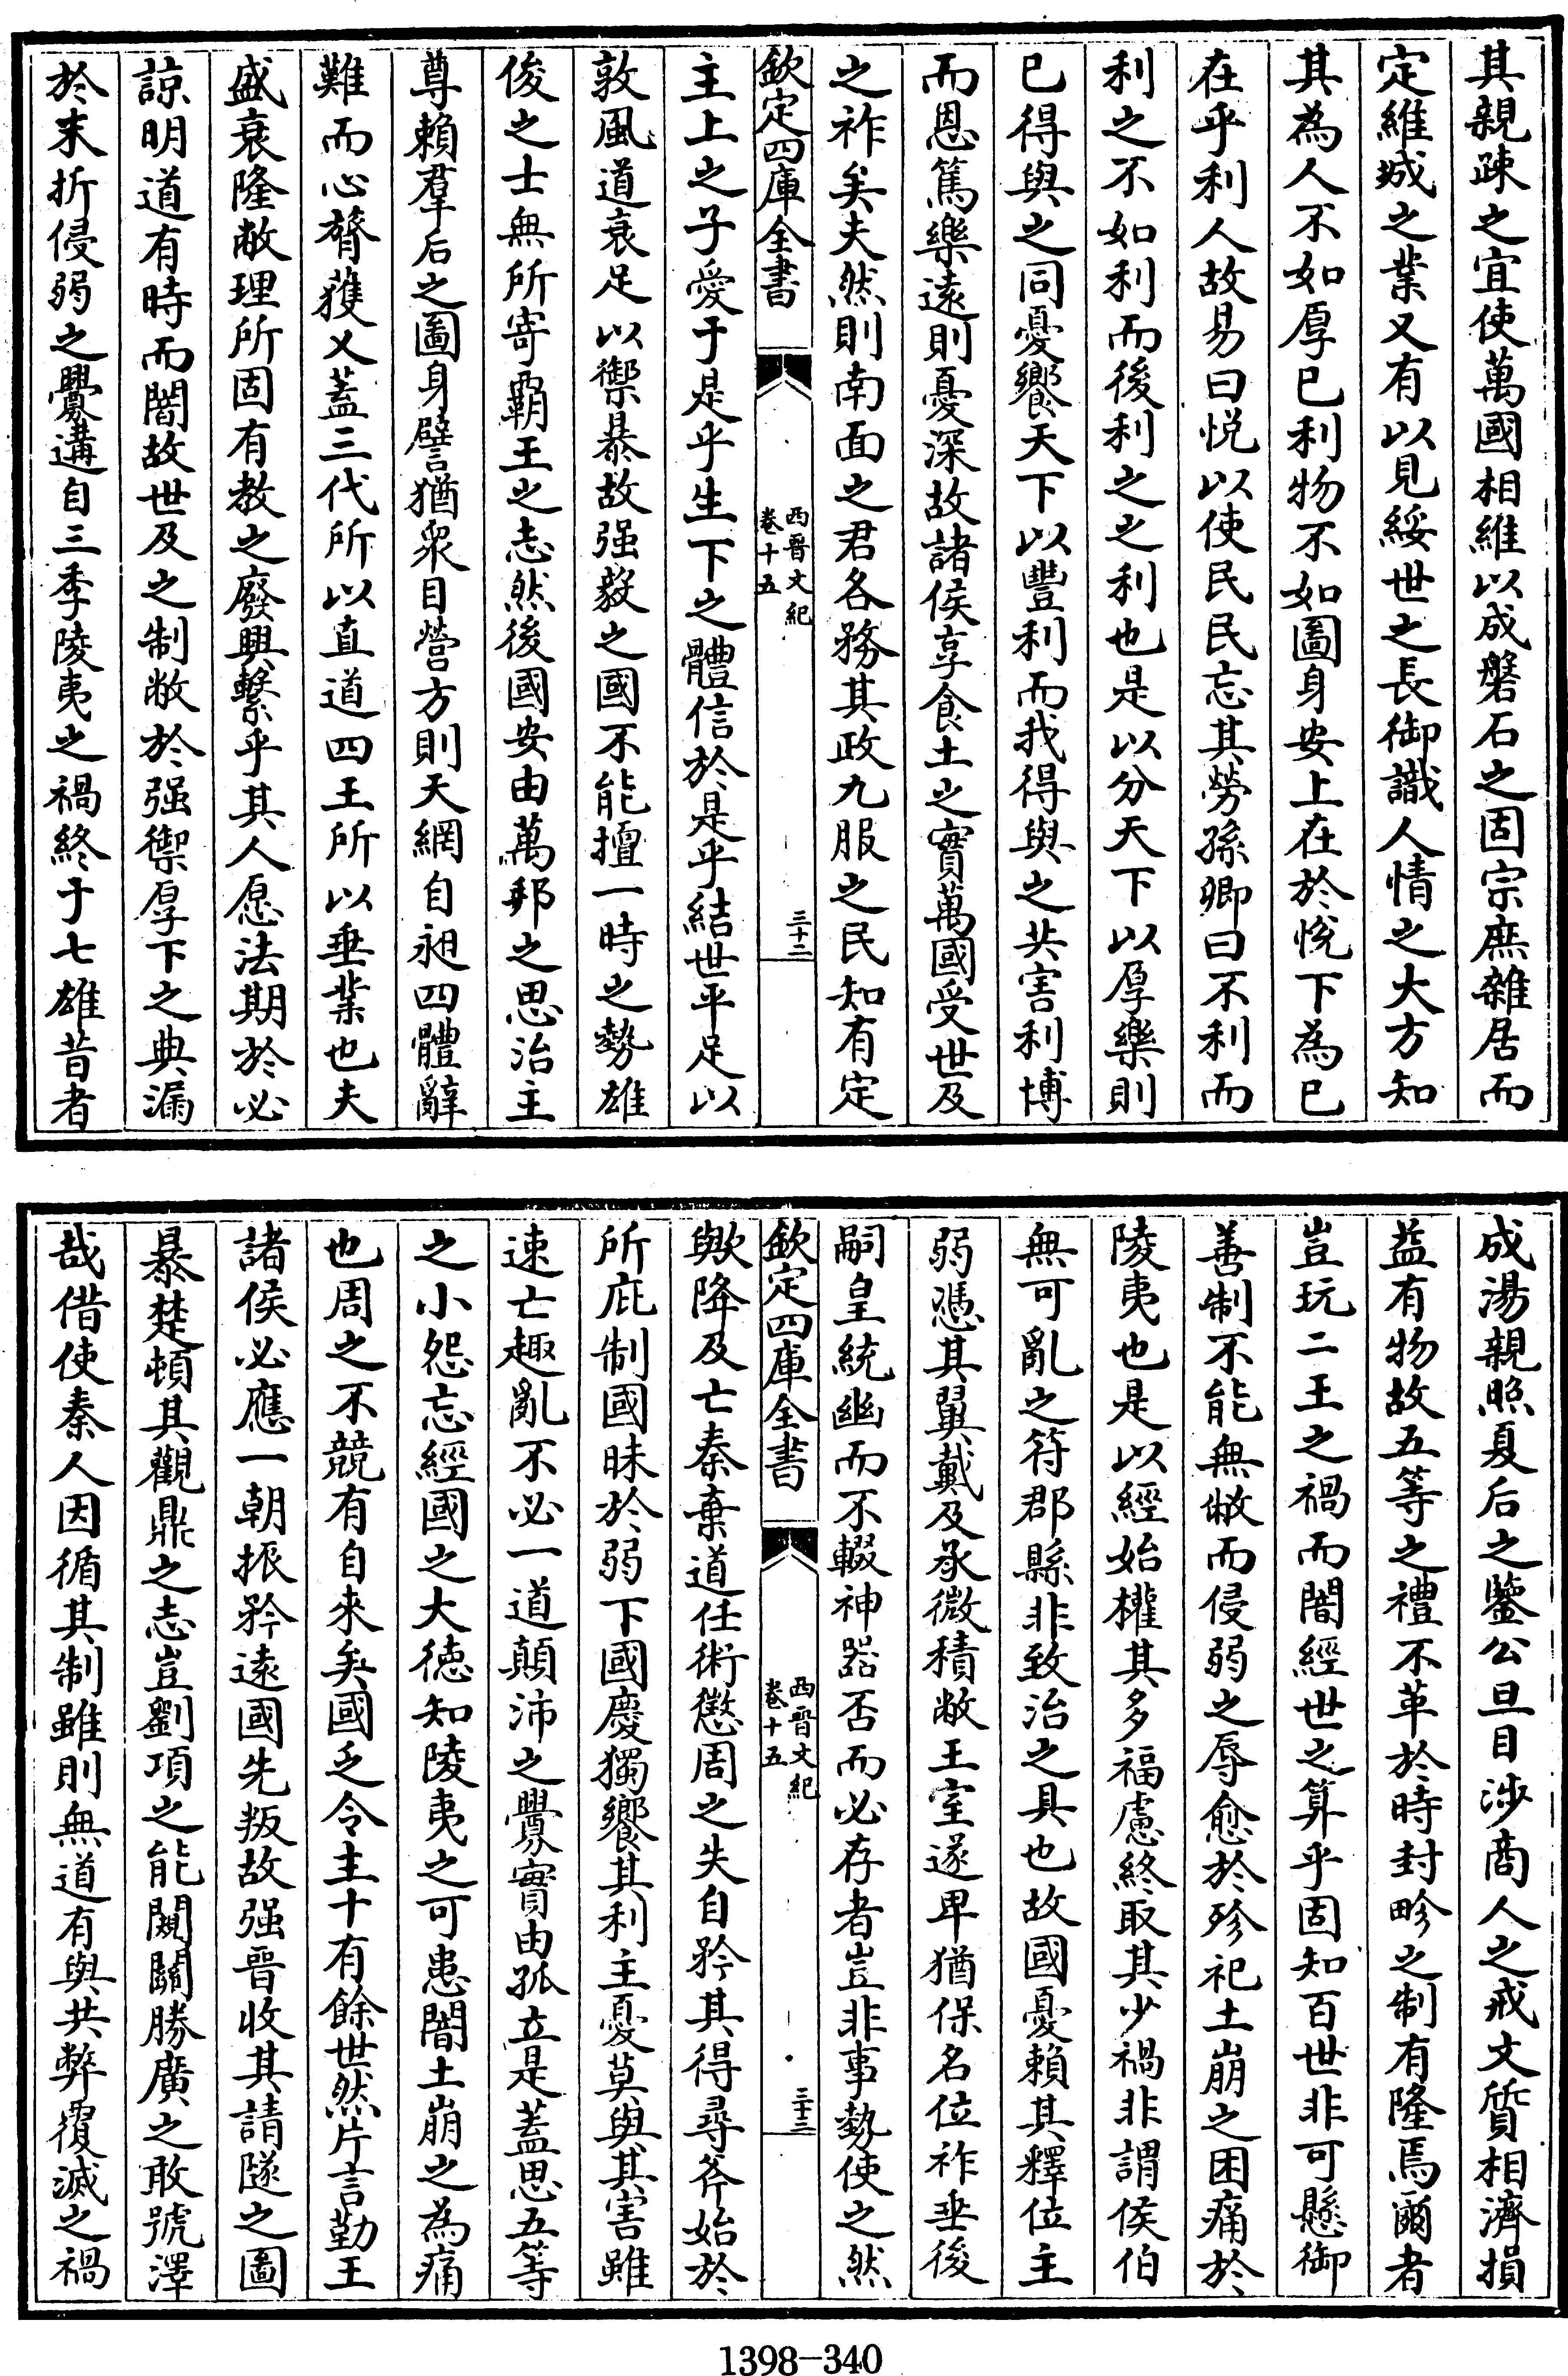 其親疎之宜使萬國相維以成磐石之固宗庶雜居而
定維城之業又有以見綏世之長御識人情之大方知
其為人不如厚已利物不如圖身安上在於悦下為已
在乎利人故易曰悦以使民民忘其勞孫卿曰不利而
利之不如利而後利之之利也是以分天下以厚樂則
已得與之同憂饗天下以豐利而我得與之共害利博
而恩篤樂遠則憂深故諸侯享食土之實萬國受世及
之祚矣夫然則南面之君各務其政九服之民知有定
欽定四庫全書
西晉文紀
卷十五
三十二
主上之子愛于是乎生下之體信於是乎結世平足以
敦風道衰足以禦暴故强毅之國不能擅一時之勢雄
俊之士無所寄霸王之志然後國安由萬邦之思治主
尊賴羣后之圖身譬猶衆目營方則天網自昶四體辭
難而心膂獲乂蓋三代所以直道四王所以垂業也夫
盛衰隆敝理所固有教之廢興繫乎其人愿法期於必
諒明道有時而闇故世及之制敝於强禦厚下之典漏
於末折侵弱之釁遘自三季陵夷之禍終于七雄昔者
成湯親照夏后之鑒公旦目渉商人之戒文質相濟損
益有物故五等之禮不革於時封畛之制有隆焉爾者
豈玩二王之禍而闇經世之算乎固知百世非可懸御
善制不能無敝而侵弱之辱愈於殄祀土崩之困痛於
陵夷也是以經始權其多福慮終取其少禍非謂侯伯
無可亂之符郡縣非致治之具也故國憂賴其釋位主
弱憑其翼戴及承微積敝王室遂卑猶保名位祚垂後
嗣皇統幽而不輟神器否而必存者豈非事勢使之然
欽定四庫全書
西晉文紀
卷十五
三十三
歟降及亡秦棄道任術懲周之失自矜其得尋斧始於
所庇制國昧於弱下國慶獨饗其利主憂莫與其害雖
速亡趣亂不必一道顛沛之釁實由孤立是蓋思五等
之小怨忘經國之大徳知陵夷之可患闇土崩之為痛
也周之不競有自來矣國乏令主十有餘世然片言勤王
諸侯必應一朝振矜遠國先叛故强晉收其請隧之圖
暴楚頓其觀鼎之志豈劉項之能闚關勝廣之敢號澤
哉借使秦人因循其制雖則無道有與共弊覆滅之禍
1398-340